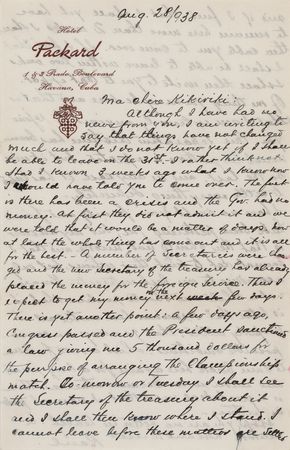 Aug. 28/938
Hotel
Packard
1 & 3 Prado Boulevard
Havana, Cuba
Ma chère Kikiriki:
Although I have had no
news from you, I am writing to
say that things have not changed
much and that I do not know yet if I shall
be able to leave on the 31st. I rather think not
Had I known 3 weeks ago what I know now
I would have told you to come over. The fact
is there has been a crisis and the Gov. had no
money. At first they did not admit it and we
were told that it would be a matter of days, now
at last the whole thing has come out and it is all
for the best. A number of Secretaries were chan-
ged and the new Secretary of the treasury has already
placed the money for the foreign Service. Thus I
expect to get my money in the next few days.
There is yet another point: A few days ago,
Congress passed and the President sanctioned
a law giving me 5 thousand dollars for
the purpose of arranging the Championship
match. To morrow or Tuesday I shall see
the Secretary of the treasury about it
and I shall then know where I stand. I
cannot leave before these matters are settled